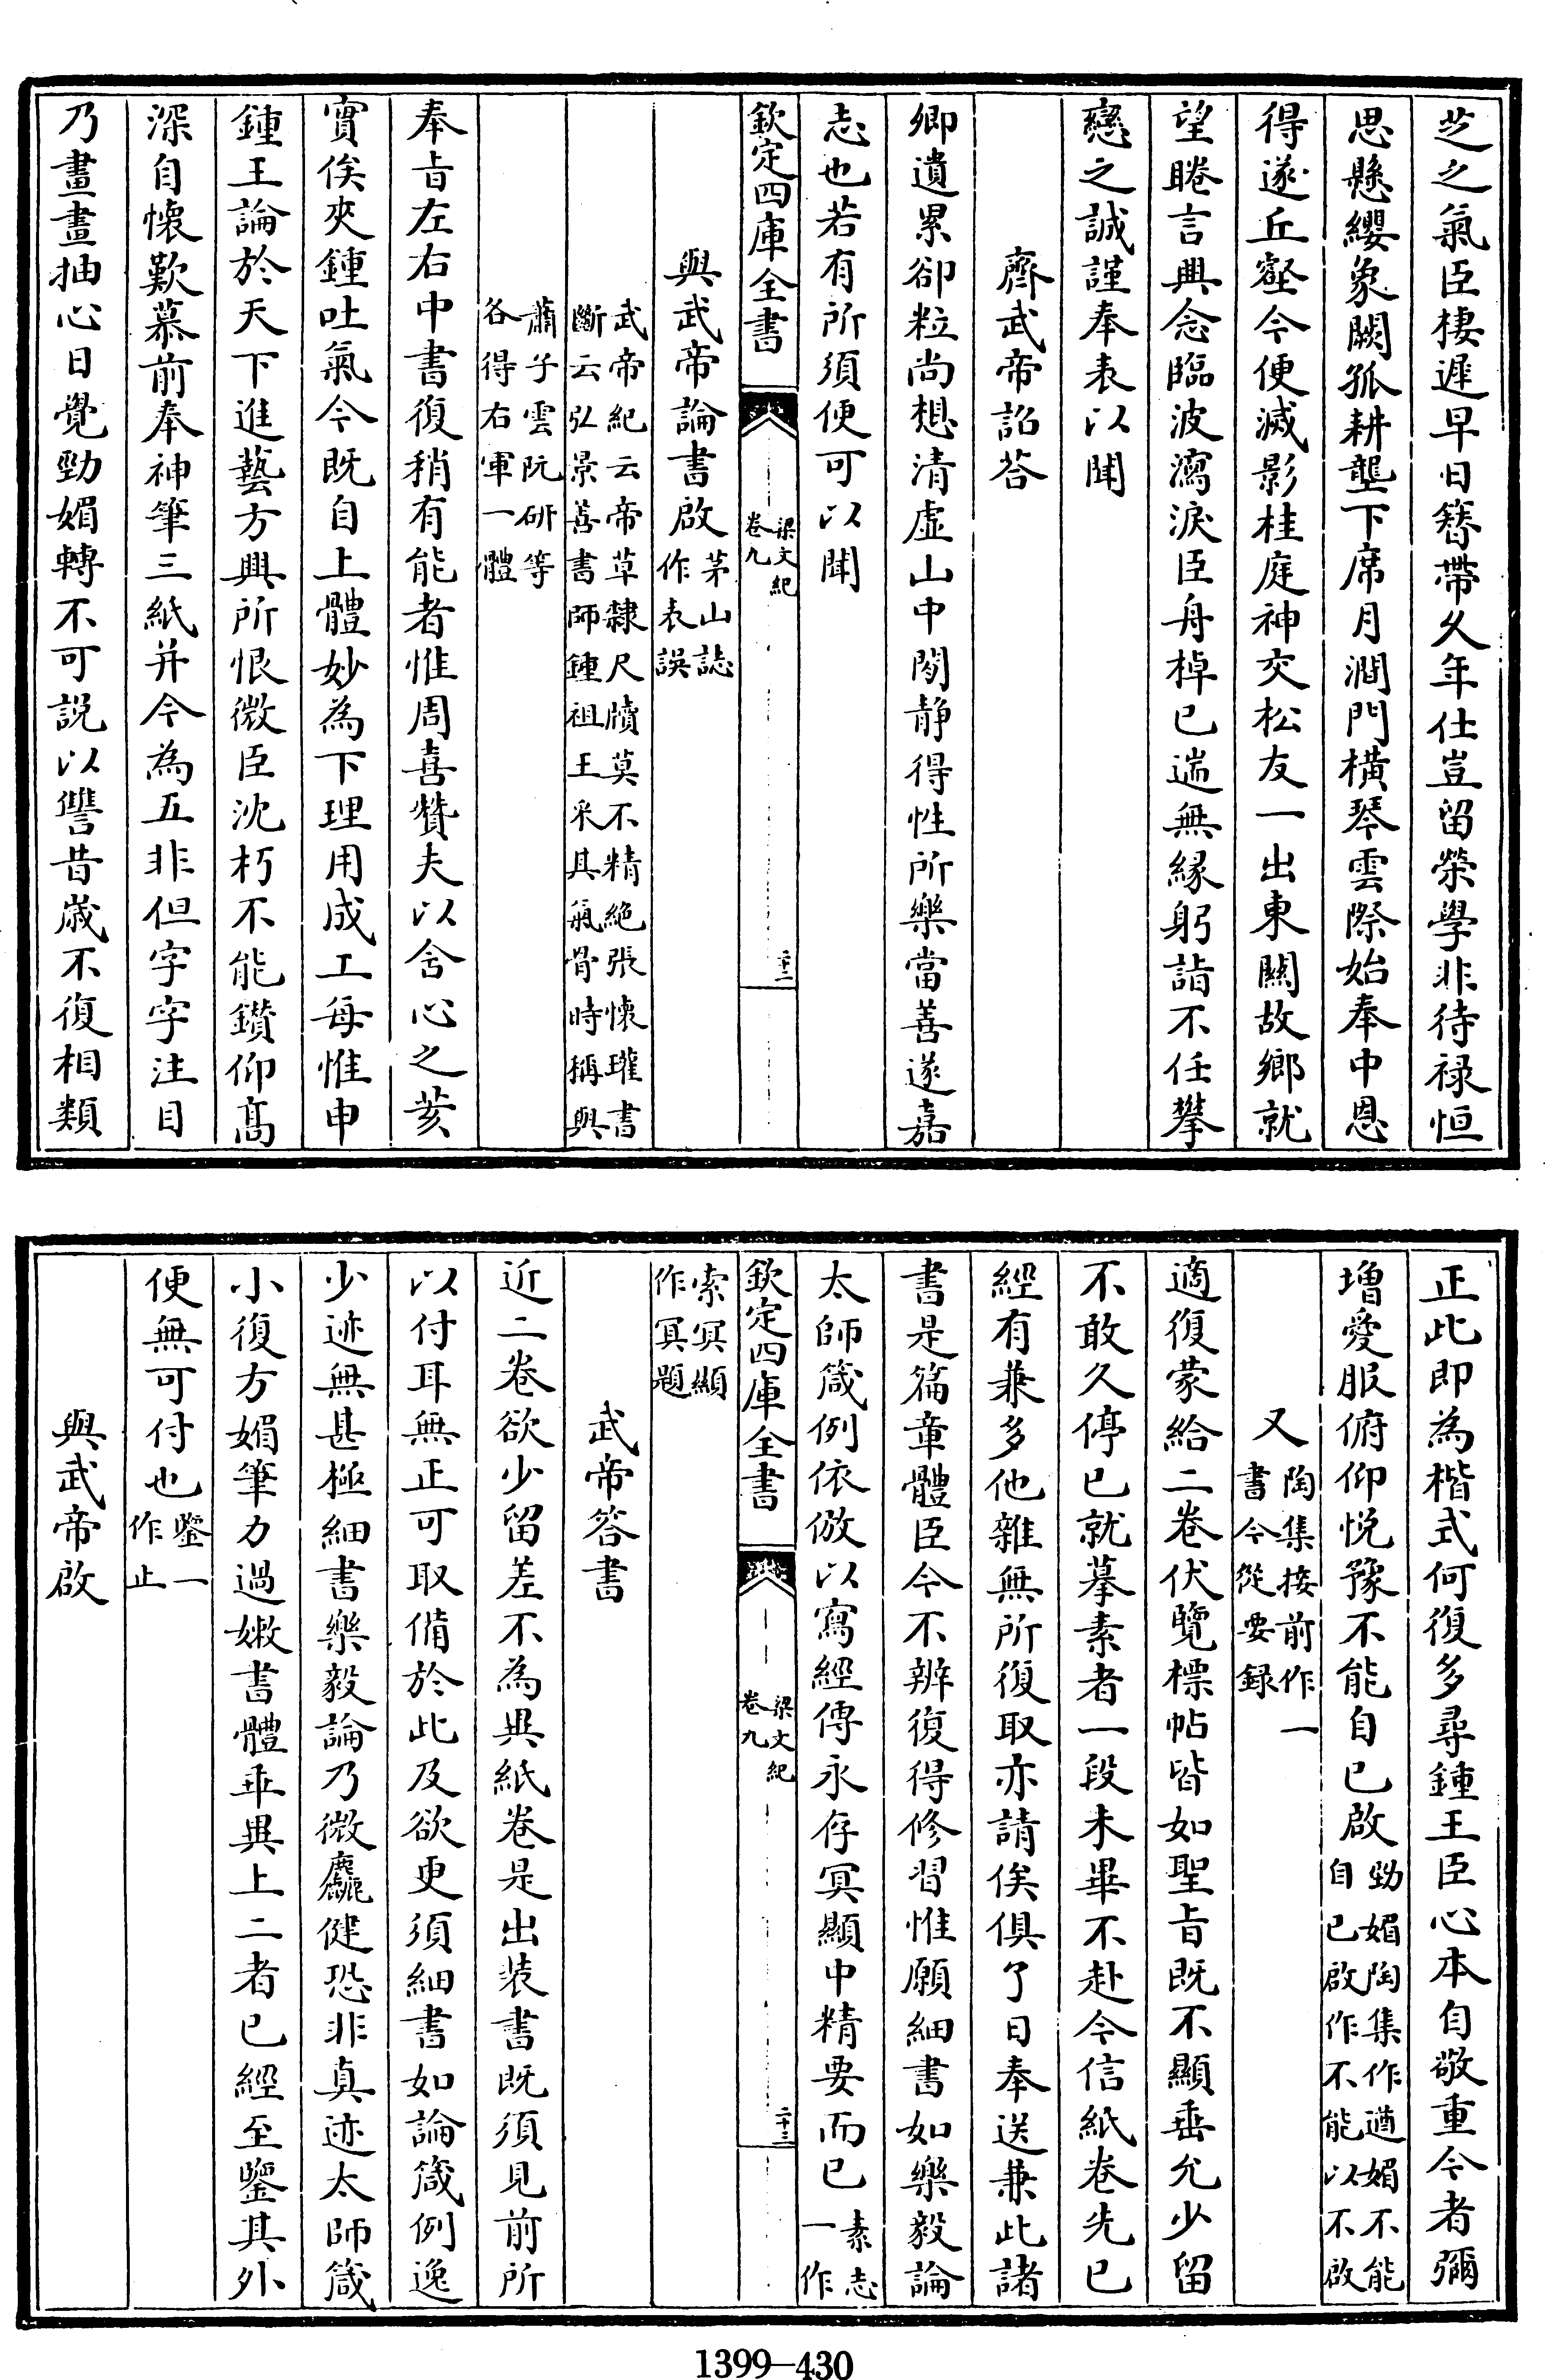 芝之氣臣棲遲早日簪帶久年仕豈留榮學非待禄恒
思懸纓象闕孤耕壟下席月澗門横琴雲際始奉中恩
得遂丘壑今便滅影桂庭神交松友一出東關故鄉就
望睠言興念臨波瀉淚臣舟棹已遄無縁躬詣不任攀
戀之誠謹奉表以聞
齊武帝詔荅
卿遺累卻粒尚想清虚山中閒静得性所樂當善遂嘉
志也若有所須便可以聞
欽定四庫全書
梁文紀
卷九
二十二
與武帝論書啟
茅山誌
作表誤
武帝紀云帝草隸尺牘莫不精絶張懷瓘書
斷云弘景善書師鍾祖王采其氣骨時稱與
蕭子雲阮研等
各得右軍一體
奉旨左右中書復稍有能者惟周喜贊夫以含心之荄
實俟夾鍾吐氣今既自上體妙為下理用成工每惟申
鍾王論於天下進藝方興所恨微臣沈朽不能鑚仰髙
深自懷歎慕前奉神筆三紙并今為五非但字字注目
乃畫畫抽心日覺勁媚轉不可説以讐昔歳不復相類
正此即為楷式何復多尋鍾王臣心本自敬重今者彌
增愛服俯仰悦豫不能自已啟
勁媚陶集作遒媚不能
自已啟作不能以不啟
又
陶集接前作一
書今從要録
適復蒙給二卷伏覽標帖皆如聖旨既不顯垂允少留
不敢久停已就摹素者一段未畢不赴今信紙卷先已
經有兼多他雜無所復取亦請俟俱了日奉送兼此諸
書是篇章體臣今不辨復得修習惟願細書如樂毅論
太師箴例依倣以寫經傳永存冥顯中精要而已
素志
一作
欽定四庫全書
梁文紀
卷九
二十三
索冥顯
作冥題
武帝答書
近二卷欲少留差不為異紙卷是出装書既須見前所
以付耳無正可取備於此及欲更須細書如論箴例逸
少迹無甚極細書樂毅論乃微麤健恐非真迹太師箴
小復方媚筆力過嫩書體乖異上二者已經至鑒其外
便無可付也
鑒一
作止
與武帝啟
1399—430